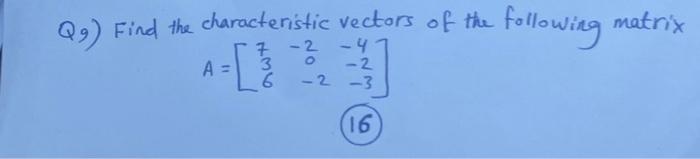 Q9) Find the characteristic vectors of the following matrix
A = [ 7 -2 -4
3 0 -2
6 -2 -3 ]
16